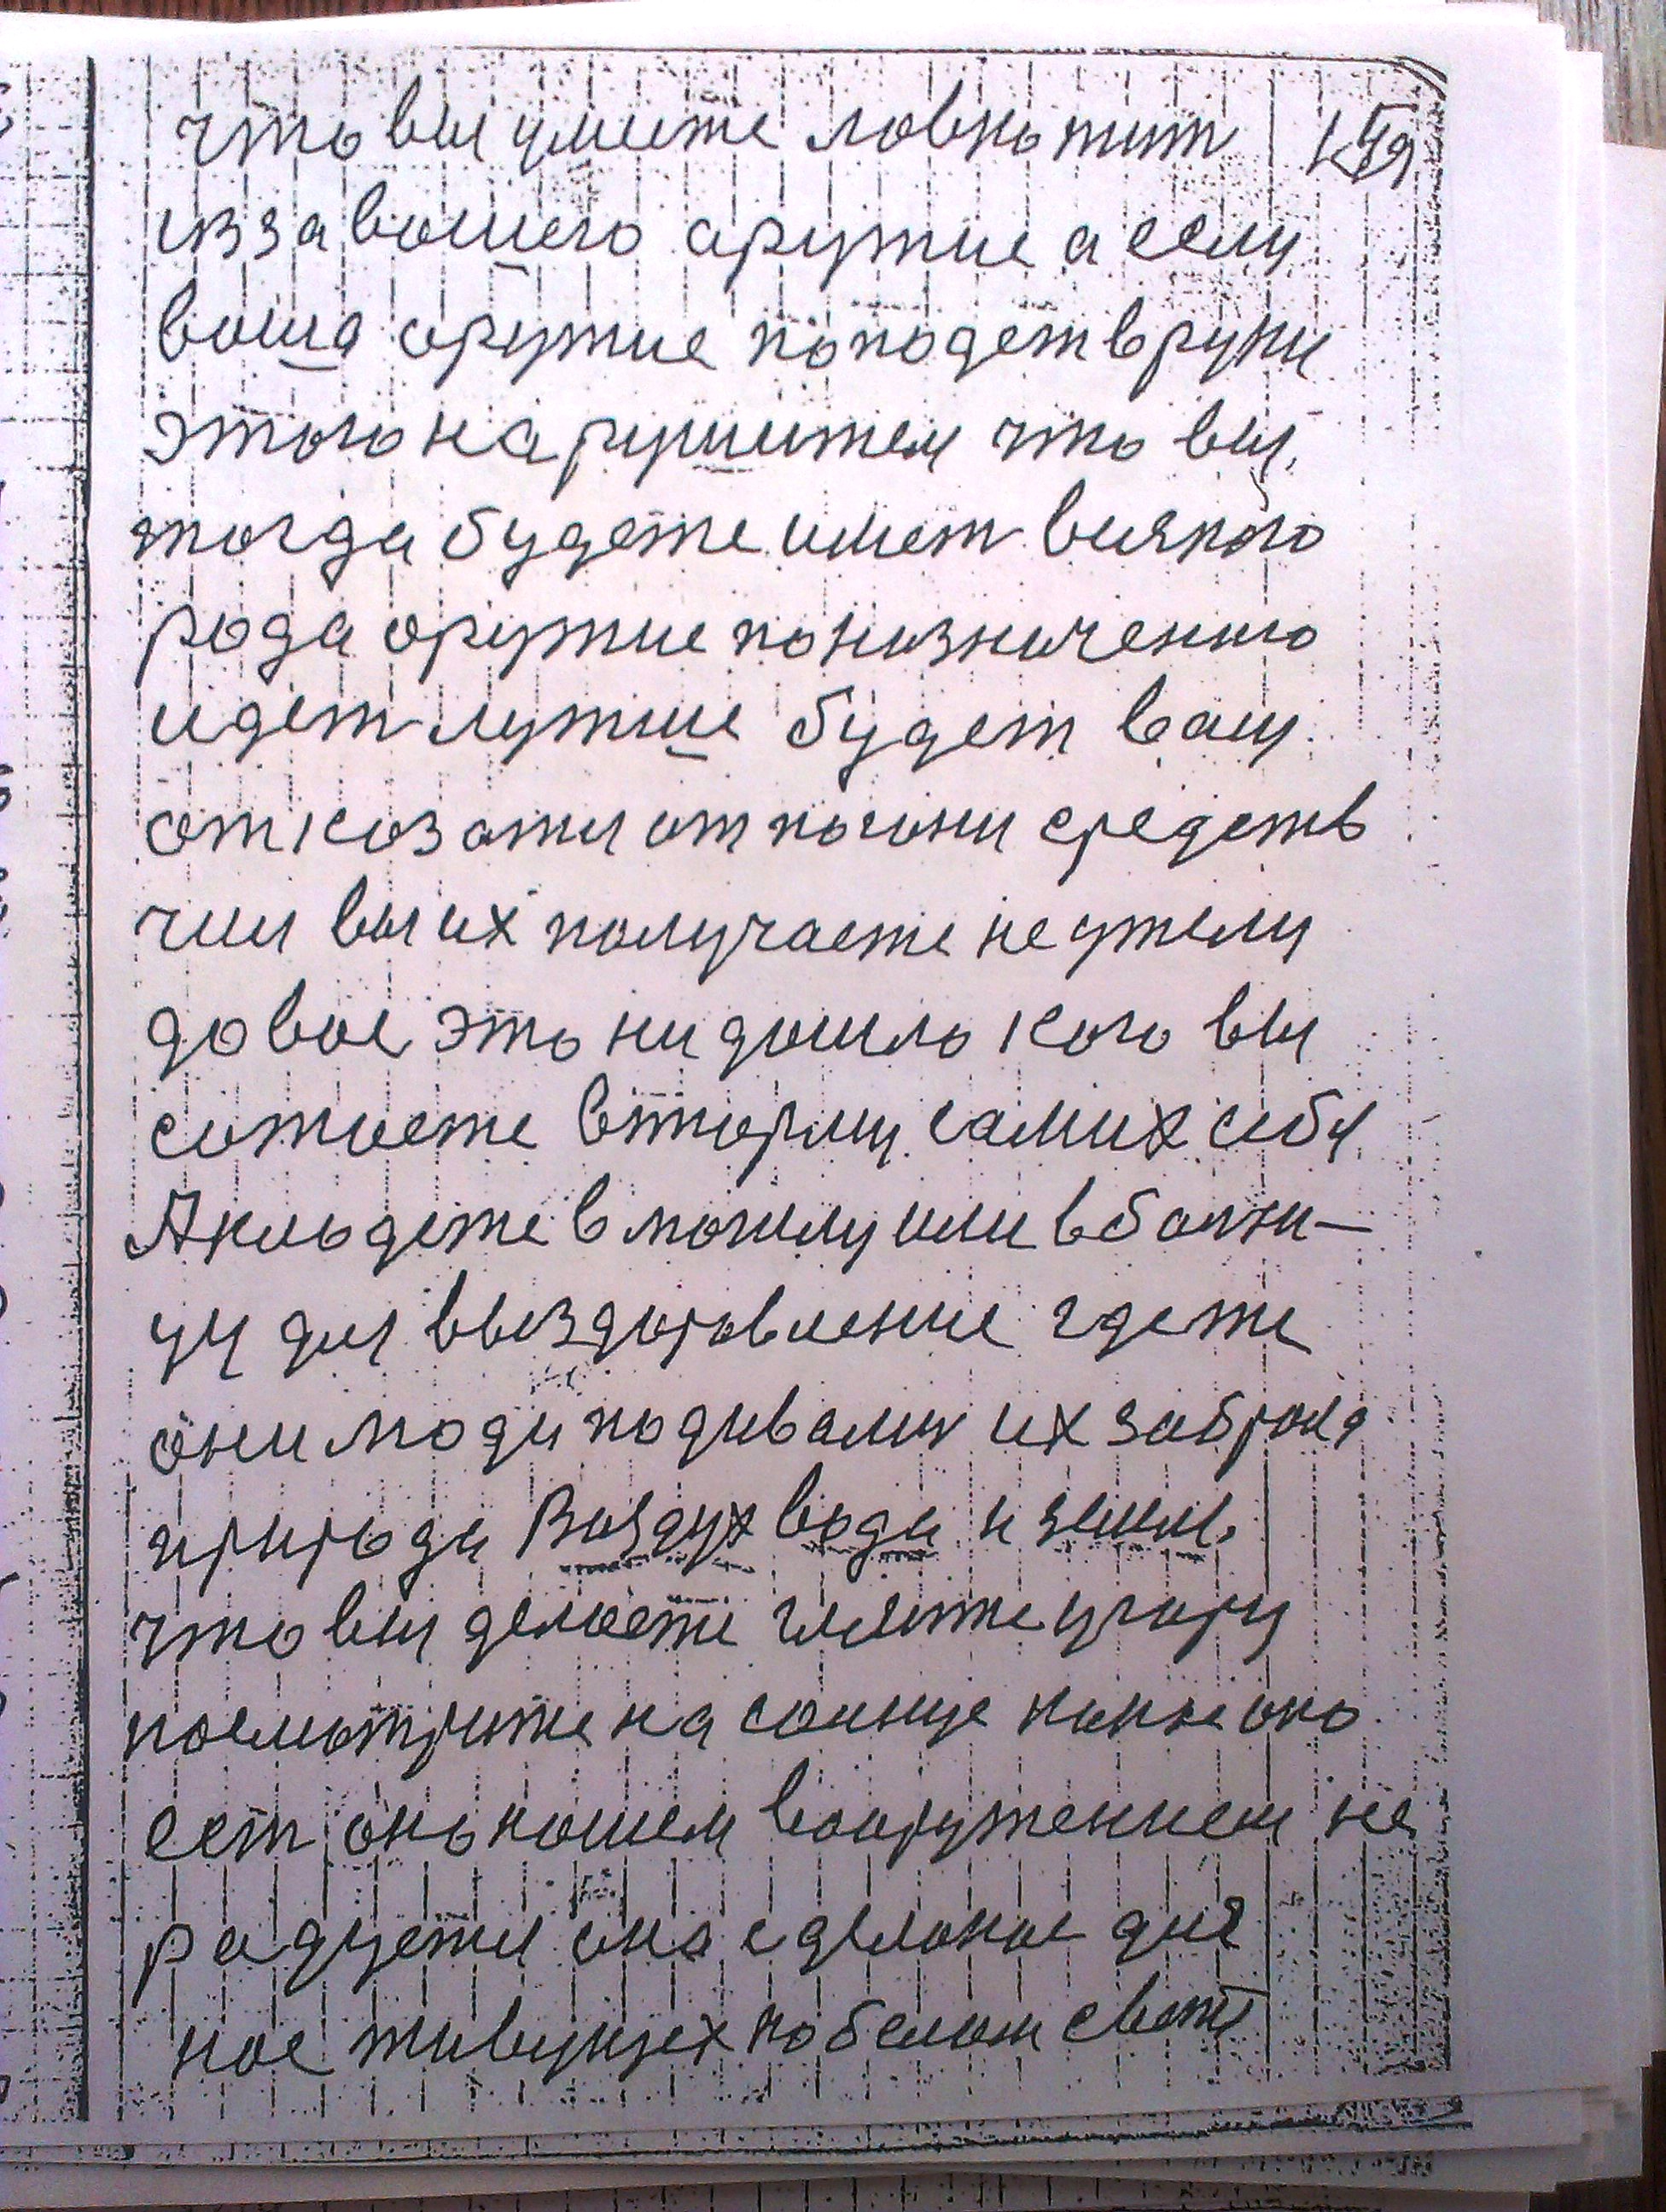 что вы умеете ловко жит
из за вашего аружие а если
ваша оружие пападет в руки
этого нарушителя что вы
тогда будете имет всякого
рода оружие по назначению
идет лутше будет вам
отказатся от погони средств
чии вы их получаете неужели
до вас это ни дошло кого вы
сожаете в тюрму самих себя
А кладете в могилу или в болни-
цу для выздоровление где же
они люди подивалис их забрала
природа Воздух вода и земля
что вы делаете гляньте у гору
посмотрите на солнце какже оно
ест оно нашем вооружением не
радуется она сделаное для
нас живущех по белом свете